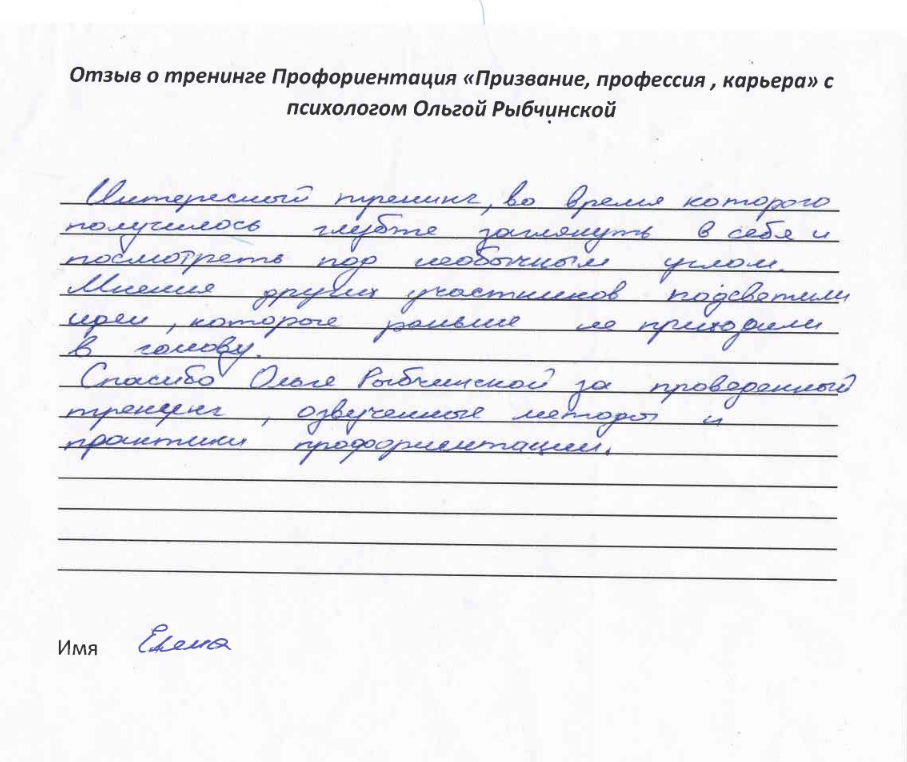 Отзыв о тренинге Профориентация «Призвание, профессия , карьера» с
психологом Ольгой Рыбчинской
Интересный тренинг, во время которого
получилось глубже заглянуть в себя и
посмотреть под необычным углом.
Мнения других участников подсветили
идеи, которые раньше не приходили
в голову.
Спасибо Ольге Рыбчинской за проведенный
тренинг, озвученные методы и
практики профориентации.
Имя Елена